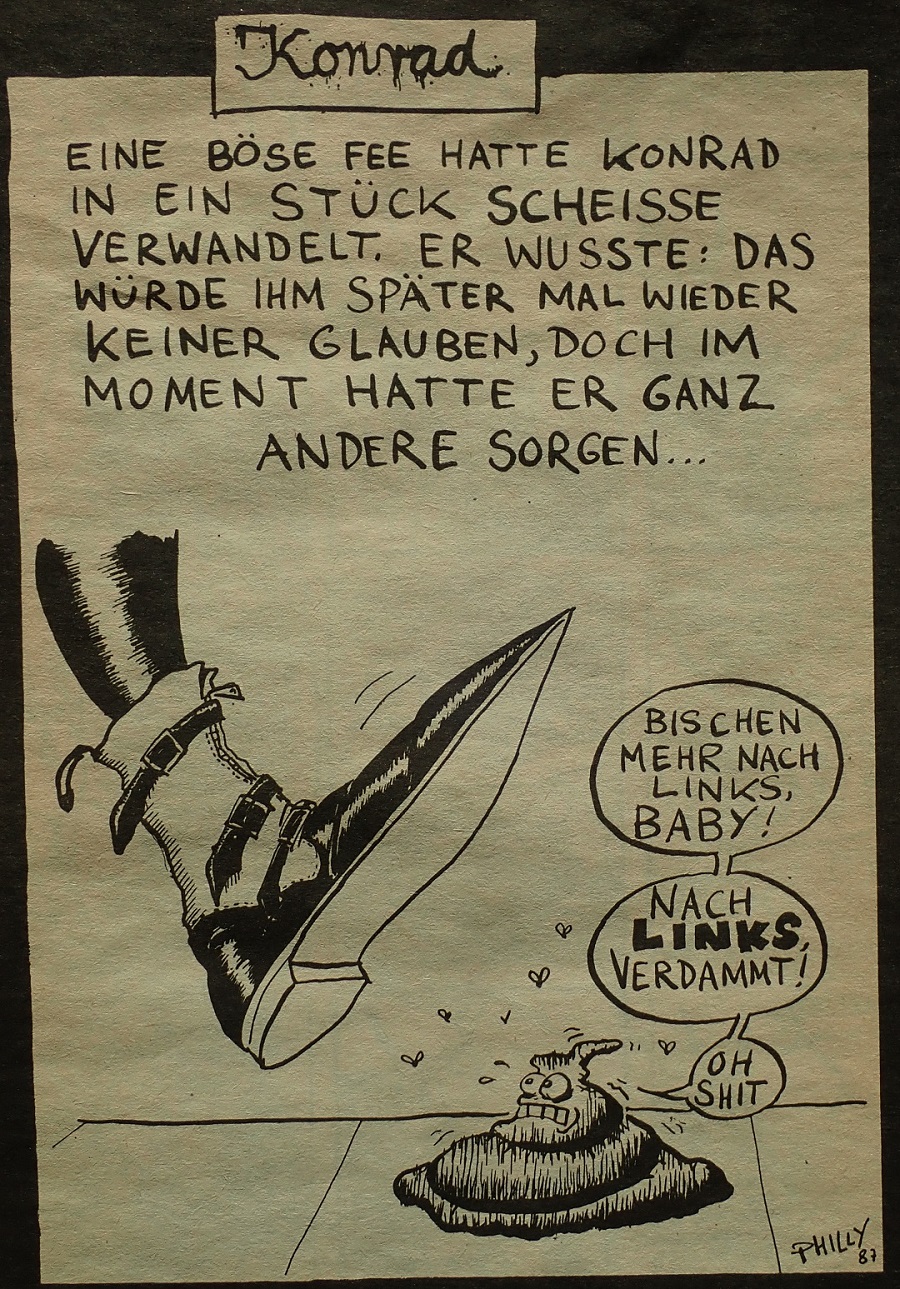 Konrad
EINE BÖSE FEE HATTE KONRAD
IN EIN STÜCK SCHEISSE
VERWANDELT. ER WUSSTE: DAS
WÜRDE IHM SPÄTER MAL WIEDER
KEINER GLAUBEN, DOCH IM
MOMENT HATTE ER GANZ
ANDERE SORGEN...
BISCHEN
MEHR NACH
LINKS,
BABY!
NACH
LINKS,
VERDAMMT!
OH
SHIT
PHILLY
87